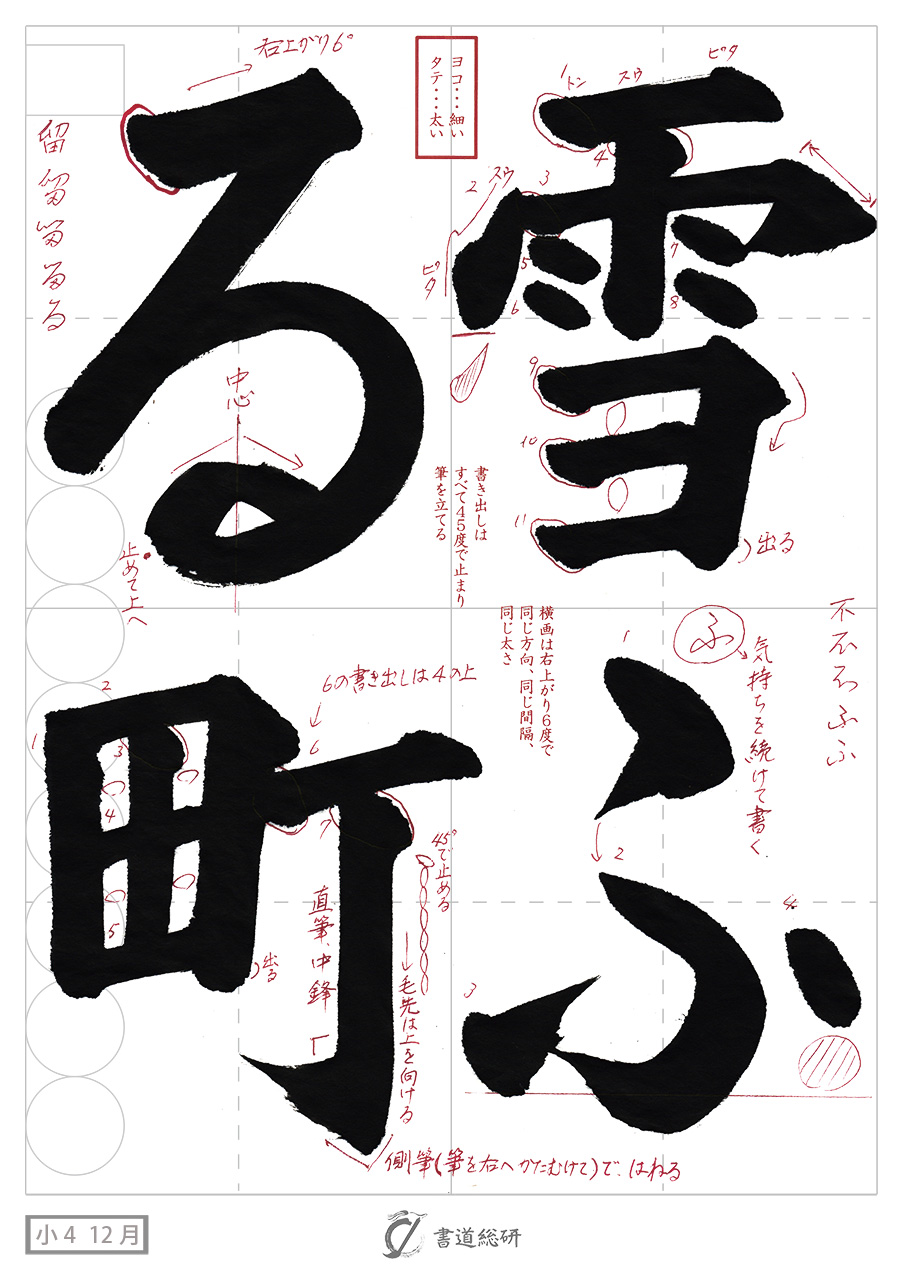 雪ふ
る町
ヨコ・・・細い
タテ・・・太い
1
トン
スウ
ピタ
2
スウ
3
4
ピタ
5
6
7
8
9
10
11
出る
書き出しは
すべて45度で止まり
筆を立てる
横画は右上がり6度で
同じ方向、同じ間隔、
同じ太さ
右上がり6°
留
る
中心
止めて上へ
不
ふ
ふ
気持ちを続けて書く
1
2
3
4
6の書き出しは4の上
1
2
3
4
5
6
7
出る
45°で止める
直筆、中鋒
毛先は上を向ける
側筆(筆を右へかたむけて)で、はねる
小4 12月
書道総研